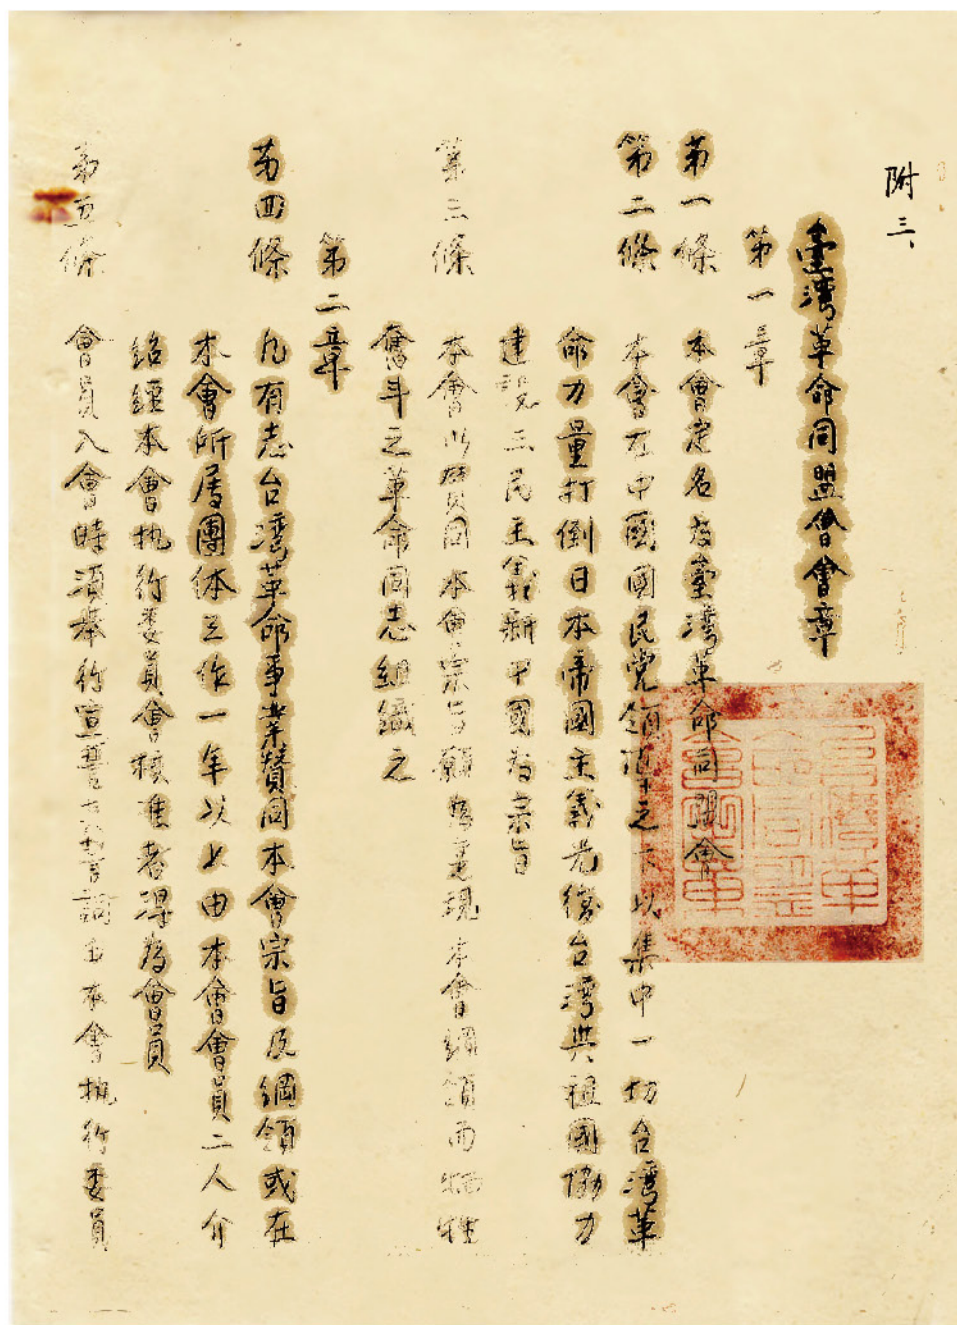 附三、
臺灣革命同盟會會章
第一章
第一條 本會定名為臺灣革命同盟會
第二條 本會在中國國民党領導之下以集中一切台灣革
命力量打倒日本帝國主義光復台灣與祖國協力
建設三民主義新中國為宗旨
第三條 本會以贊同本會宗旨願為實現本會綱領而牺牲
奮斗之革命同志組織之
第二章
第四條 凡有志台灣革命事業贊同本會宗旨及綱領或在
本會所屬團体工作一年以上由本會會員二人介
紹經本會执行委員會核准者得為會員
第五條 會員入會時須舉行宣誓誓詞由本會执行委員